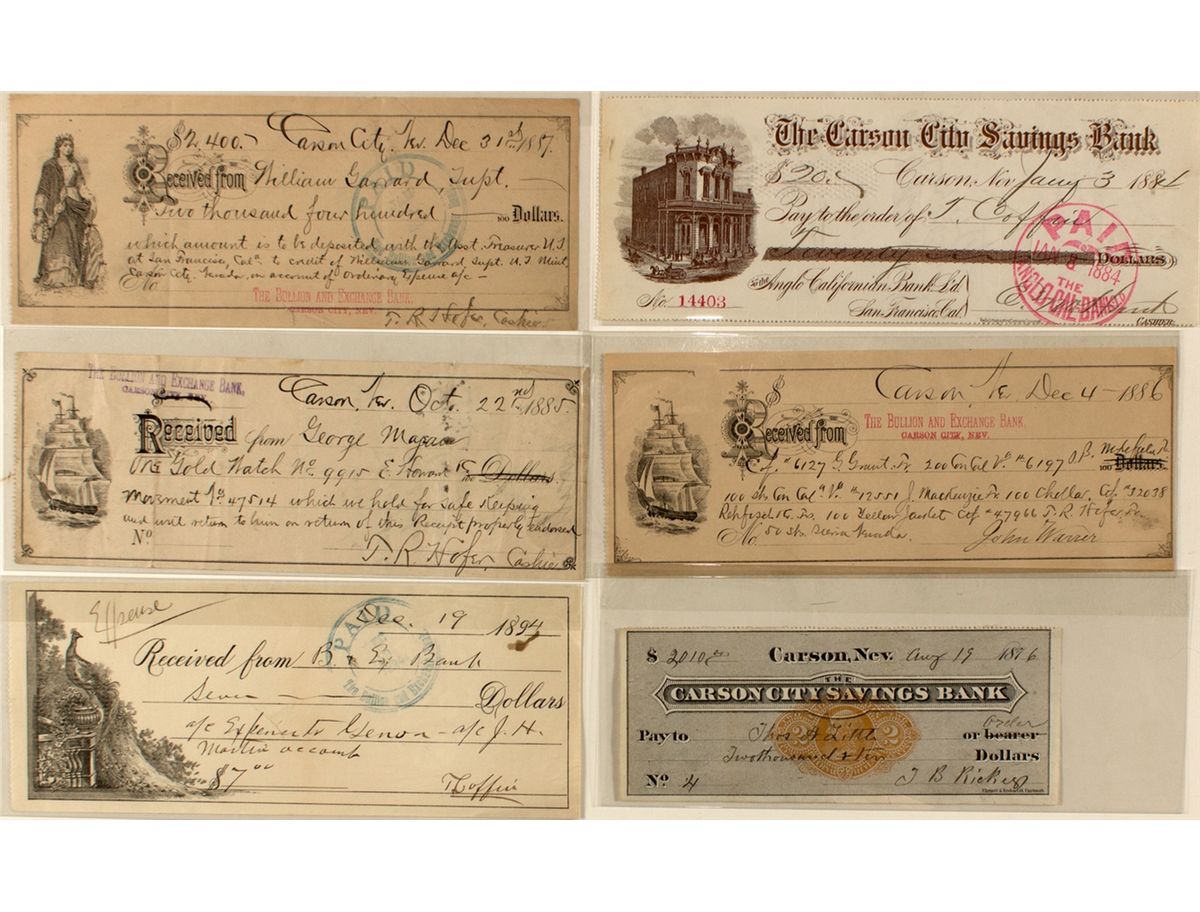 $2,400.- Carson City, Nev Dec 31st 1887.
Received from William Garrard, Supt. —
Two thousand four hundred — 100 Dollars.
which amount is to be deposited with the Asst. Treasurer U.S.
at San Francisco, Cal. to credit of William Garrard Supt. U.S. Mint
Carson City, Nevada, on account of Ordinary Expense a/c -
No.
THE BULLION AND EXCHANGE BANK,
CARSON CITY, NEV.
T. R. Hofer, Cashier
PAID
The Carson City Savings Bank
$20.
Carson, Nev Jany 3 1884
Pay to the order of T. Coffin
Twenty DOLLARS
To the Anglo Californian Bank Ld
San Francisco, Cal.
No. 14403
PAID
JAN 8 1884
THE
ANGLO-CAL. BANK LD
CASHIER
THE BULLION AND EXCHANGE BANK,
CARSON CITY, NEV.
Carson, Nev. Oct. 22nd 1885.
Received from George
One Gold Watch No. 9915 E. Howard Dollars
Movement No 47514 which we hold for Safe Keeping
and will return to him on return of this Receipt properly endorsed
No
T. R. Hofer, Cashier
$ Carson, Nev Dec 4 - 1886
THE BULLION AND EXCHANGE BANK,
CARSON CITY, NEV.
Received from
Cf. #6127 G. Grant, Tr 200 Con Cal Va #6197 100 Dollars.
100 shs Con Cal Va #12551 J. MacKenzie Tr 100 Chollar, Cf. #32038
100 Yellow Jacket Ctf #47966 T. R. Hofer
No. 50 shs Sierra Nevada.
John
Expense
Dec. 19 1894
PAID
The Bullion and Exchange
Received from B & Ex Bank
Seven — Dollars
a/c Expense to Genoa - a/c J. H.
Martin account
$7.00
T Coffin
$ 2010 Carson, Nev. Aug 19 1876
THE
CARSON CITY SAVINGS BANK
order
Pay to Thos or bearer
Two thousand & ten Dollars
No. 4
T B Rickey